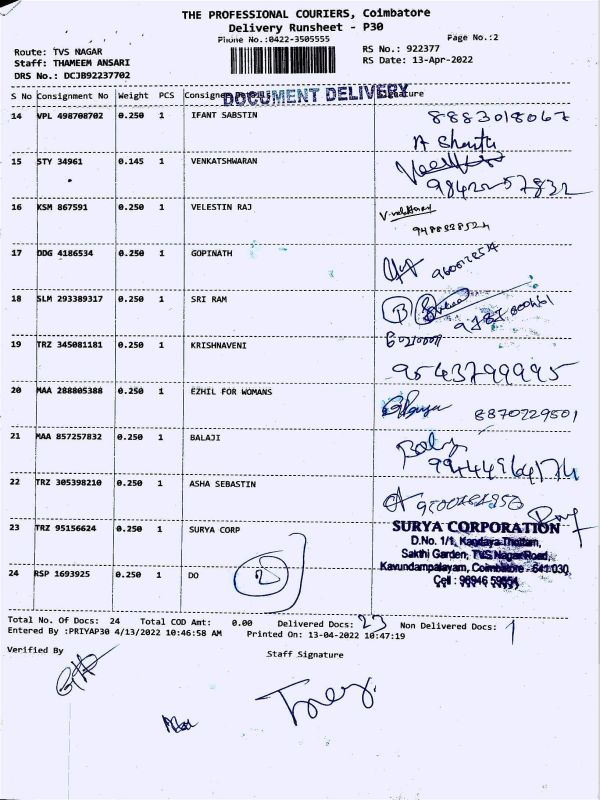 THE PROFESSIONAL COURIERS, Coimbatore
Delivery Runsheet - P30
Phone No.:0422-3505555
Page No.:2
Route: TVS NAGAR
RS No.: 922377
Staff: THAMEEM ANSARI
RS Date: 13-Apr-2022
DRS No.: DCJB92237702
S No Consignment No Weight PCS Consignee Details Signature
DOCUMENT DELIVERY
14 VPL 498708702 0.250 1 IFANT SABSTIN 8883018067
15 STY 34961 0.145 1 VENKATSHWARAN
9842257832
16 KSM 867591 0.250 1 VELESTIN RAJ
17 DDG 4186534 0.250 1 GOPINATH
18 SLM 293389317 0.250 1 SRI RAM
19 TRZ 345081181 0.250 1 KRISHNAVENI
9543799995
20 MAA 288805388 0.250 1 EZHIL FOR WOMANS
8870229501
21 MAA 857257832 0.250 1 BALAJI
22 TRZ 305398210 0.250 1 ASHA SEBASTIN
23 TRZ 95156624 0.250 1 SURYA CORP
SURYA CORPORATION
D.No. 1/1, Kandaya Thottam,
Sakthi Garden, TVS Nagar Road,
Kavundampalayam, Coimbatore - 641 030
24 RSP 1693925 0.250 1 DO 2
Cell : 98946 59554
Total No. Of Docs: 24 Total COD Amt: 0.00 Delivered Docs: 23 Non Delivered Docs: 1
Entered By :PRIYAP30 4/13/2022 10:46:58 AM Printed On: 13-04-2022 10:47:19
Verified By
Staff Signature